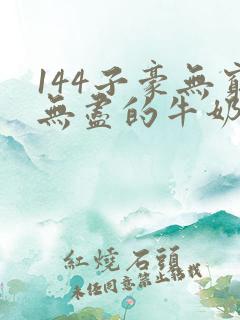 144子豪無窮
無盡的牛奶
紅燒石頭
未任同意禁止轉載